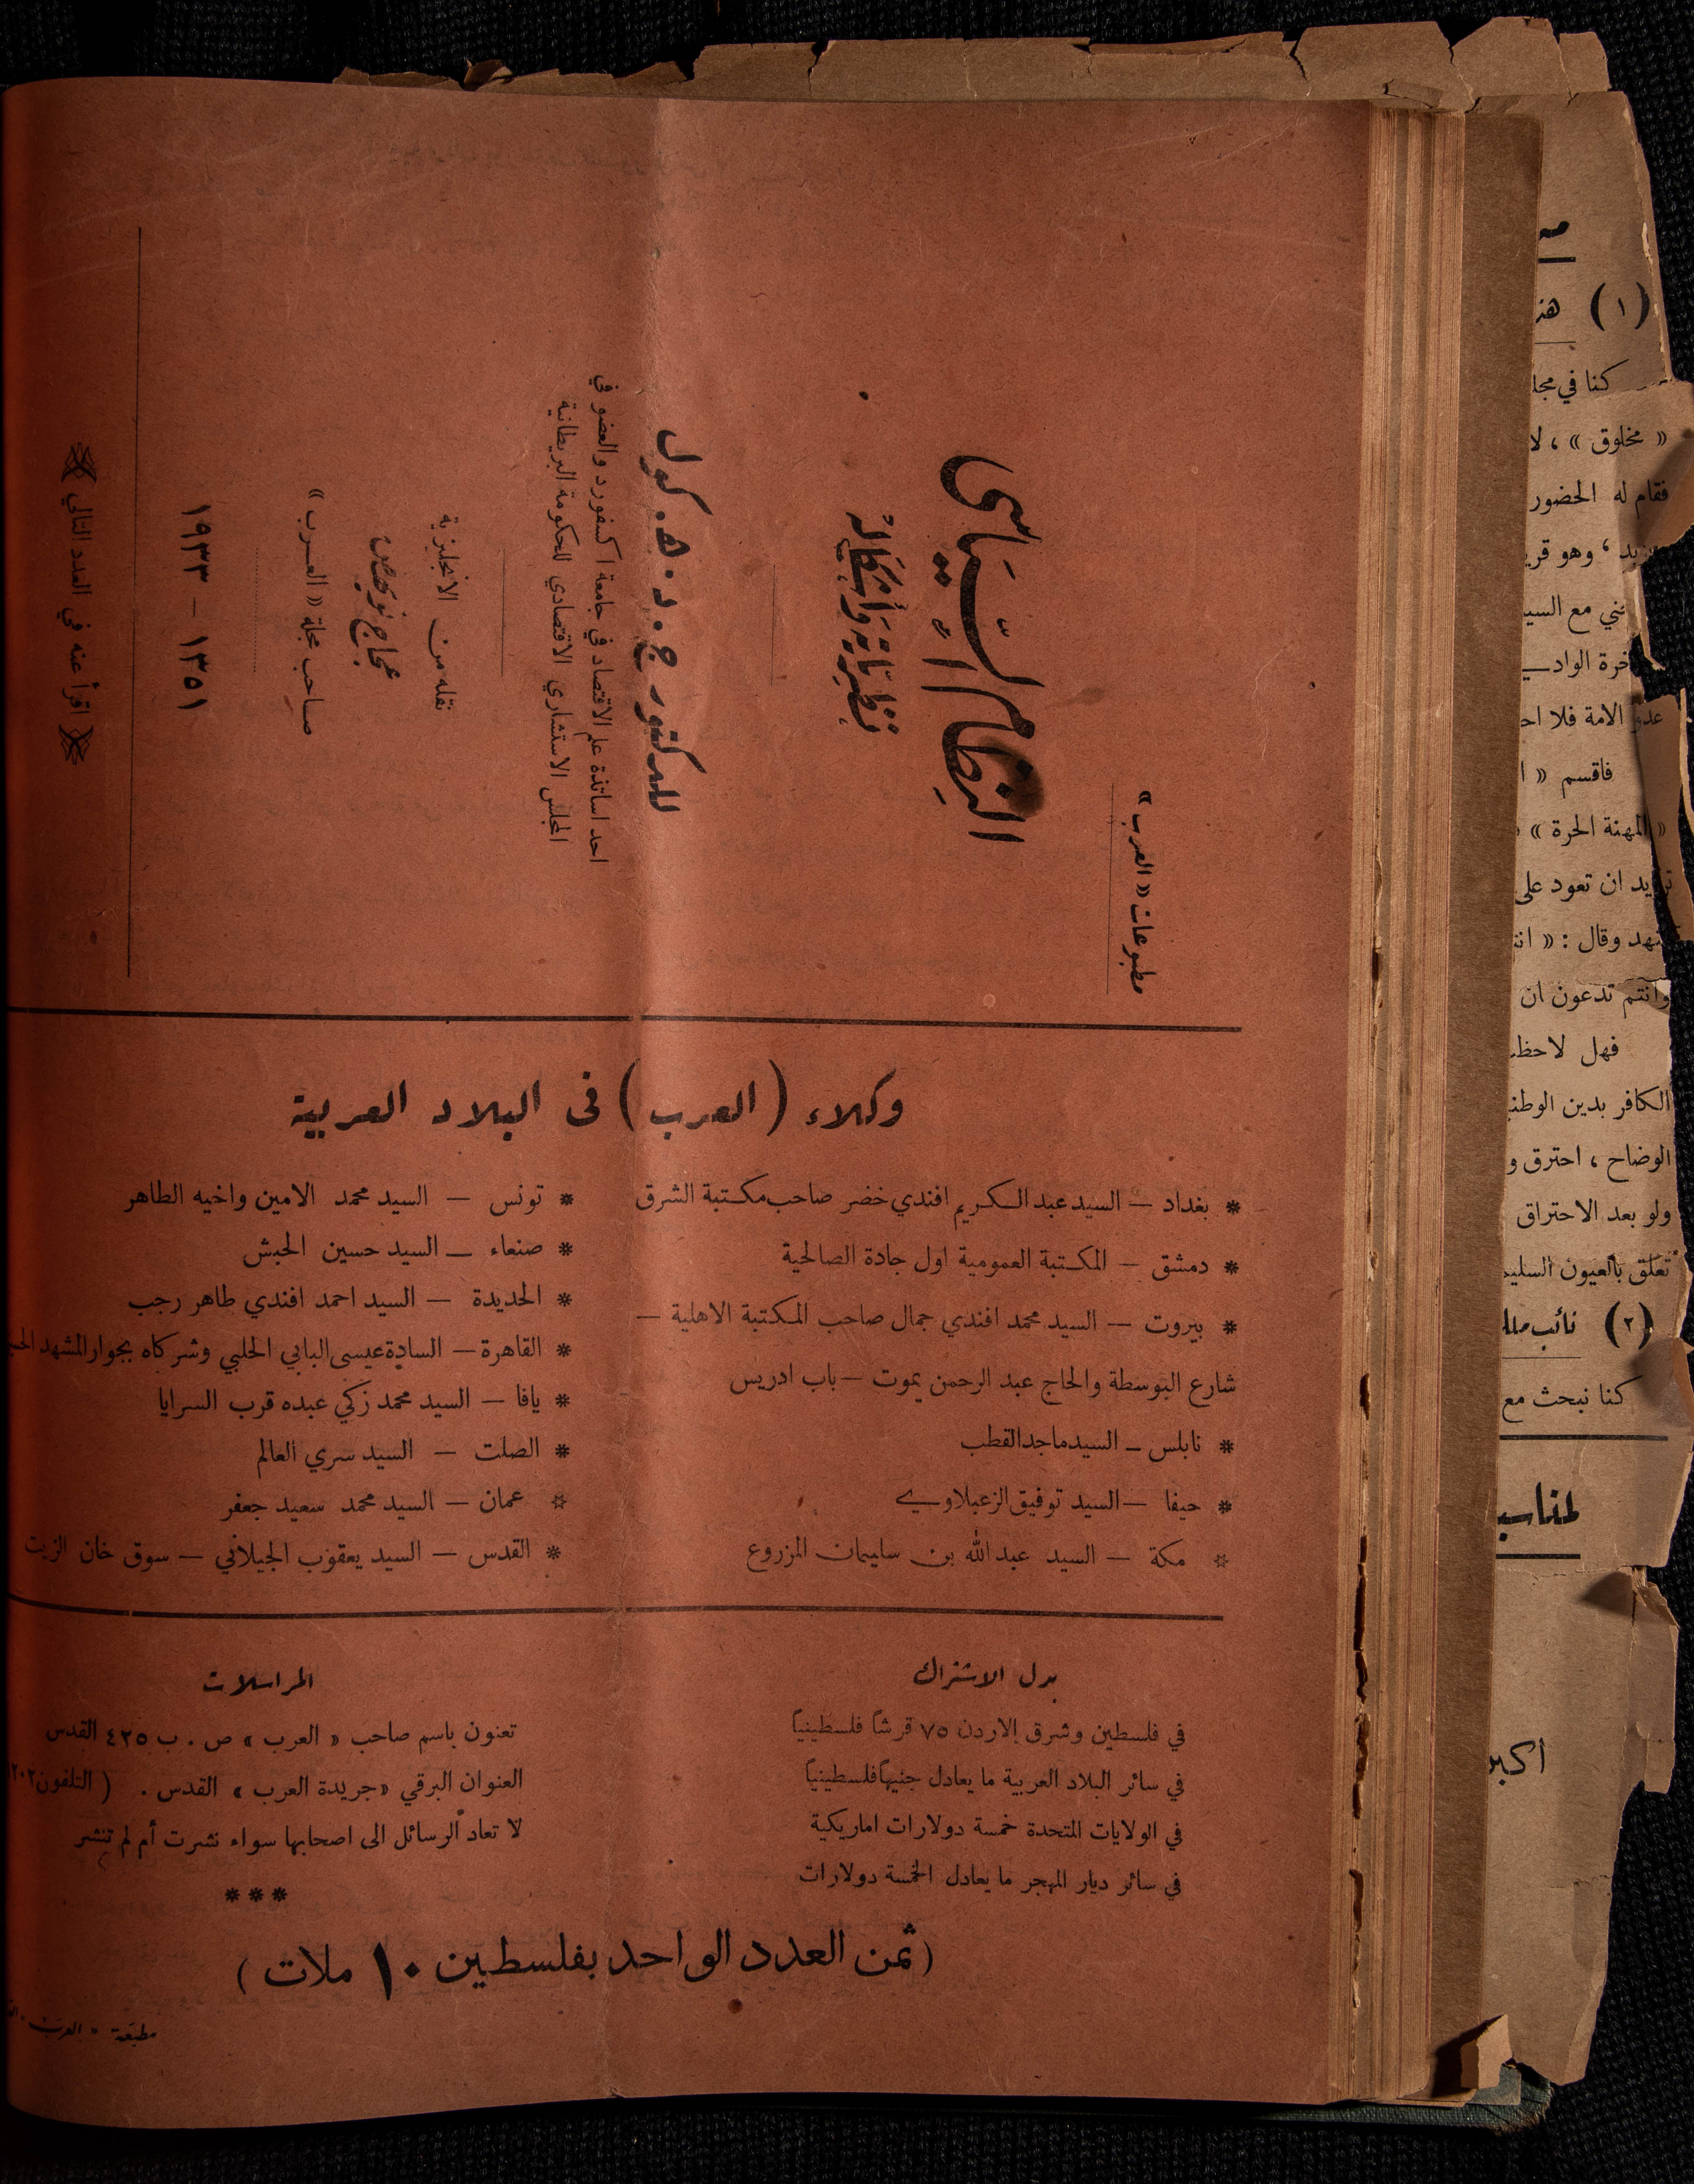 مطبوعات « العرب »
النظام السياسي
نظرياته وأشكاله
للدكتور ج . د . ه . كول
احد اساتذة علم الاقتصاد في جامعة اكسفورد والعضو في
المجلس الاستشاري الاقتصادي للحكومة البريطانية
نقله من الانجليزية
عجاج نويهض
صاحب مجلة « العرب »
١٣٥١ — ١٩٣٣
اقرأ عنه في العدد التالي
وكلاء ( العرب ) في البلاد العربية
* بغداد — السيد عبد الكريم افندي خضر صاحب مكتبة الشرق
* دمشق — المكتبة العمومية اول جادة الصالحية
* بيروت — السيد محمد افندي جمال صاحب المكتبة الاهلية —
شارع البوسطة والحاج عبد الرحمن يموت — باب ادريس
* نابلس — السيد ماجد القطب
* حيفا — السيد توفيق الزعبلاوي
* مكة — السيد عبد الله بن سليمان المزروع
* تونس — السيد محمد الامين واخيه الطاهر
* صنعاء — السيد حسين الحبش
* الحديدة — السيد احمد افندي طاهر رجب
* القاهرة — السادة عيسى البابي الحلبي وشركاه بجوار المشهد
* يافا — السيد محمد زكي عبده قرب السرايا
* الصلت — السيد سري العالم
* عمان — السيد محمد سعيد جعفر
* القدس — السيد يعقوب الجيلاني — سوق خان الزيت
بدل الاشتراك
في فلسطين وشرق الاردن ٧٥ قرشاً فلسطينياً
في سائر البلاد العربية ما يعادل جنيهاً فلسطينياً
في الولايات المتحدة خمسة دولارات اماريكية
في سائر ديار المهجر ما يعادل الخمسة دولارات
المراسلات
تعنون باسم صاحب « العرب » ص . ب ٤٢٥ القدس
العنوان البرقي « جريدة العرب » القدس . ( التلفون
لا تعاد الرسائل الى اصحابها سواء نشرت أم لم تنشر
***
( ثمن العدد الواحد بفلسطين ١٠ ملات )
مطبعة « العرب »
( ١ ) هذ
كنا في مجل
« مخلوق » ، لا
فقام له الحضور
وهو قري
ني مع السيد
عدو الامة فلا اح
فاقسم « ا
« المهنة الحرة »
تريد ان تعود على
وقال : « انت
وانتم تدعون ان
فهل لاحظ
الكافر بدين الوطن
الوضاح ، احترق و
ولو بعد الاحتراق
تعلق بالعيون السليم
( ٢ ) نائب
كنا نبحث مع
لمناسب
أكبر